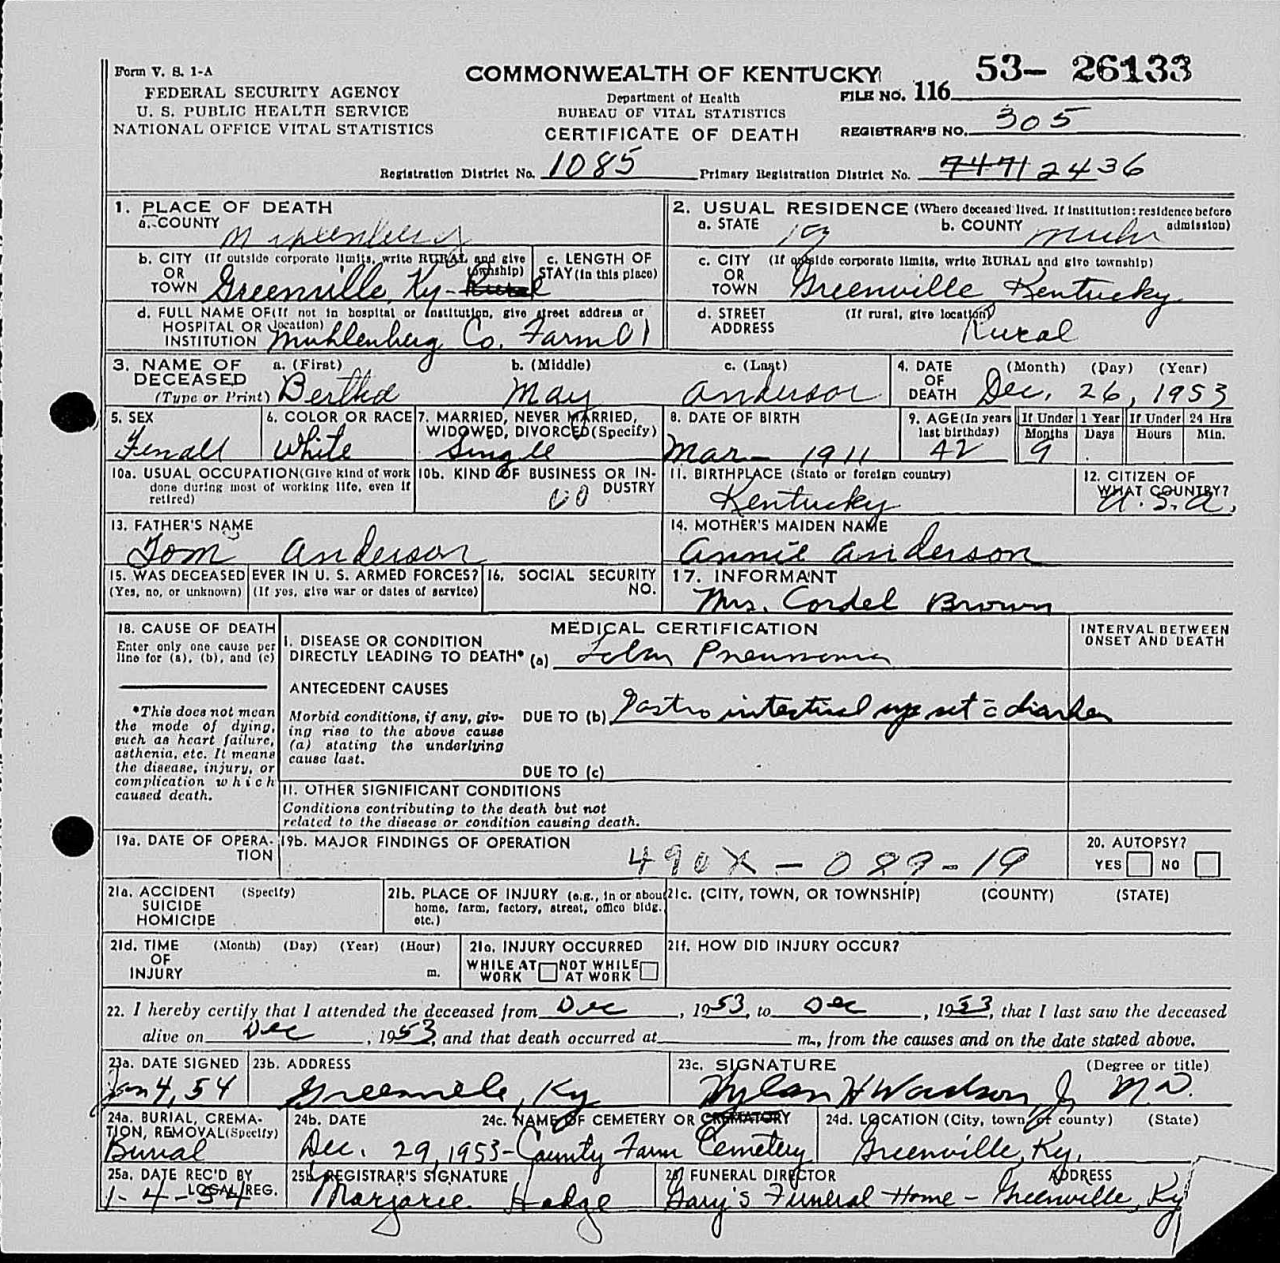 Form V. S. 1-A
FEDERAL SECURITY AGENCY
U. S. PUBLIC HEALTH SERVICE
NATIONAL OFFICE VITAL STATISTICS
COMMONWEALTH OF KENTUCKY
Department of Health
BUREAU OF VITAL STATISTICS
CERTIFICATE OF DEATH
53- 26133
FILE NO. 116
REGISTRAR'S NO. 305
Registration District No. 1085 Primary Registration District No. 7471 2436
1. PLACE OF DEATH
a. COUNTY
2. USUAL RESIDENCE (Where deceased lived. If institution: residence before admission)
a. STATE Ky b. COUNTY Muhl
b. CITY (If outside corporate limits, write RURAL and give township)
OR
TOWN Greenville, Ky - Rural
c. LENGTH OF STAY (in this place)
c. CITY (If outside corporate limits, write RURAL and give township)
OR
TOWN Greenville Kentucky
d. FULL NAME OF (If not in hospital or institution, give street address or location)
HOSPITAL OR
INSTITUTION Muhlenberg Co. Farm 01
d. STREET ADDRESS (If rural, give location)
Rural
3. NAME OF DECEASED (Type or Print)
a. (First) b. (Middle) c. (Last)
Bertha May Anderson
4. DATE OF DEATH (Month) (Day) (Year)
Dec. 26, 1953
5. SEX
Female
6. COLOR OR RACE
White
7. MARRIED, NEVER MARRIED, WIDOWED, DIVORCED (Specify)
Single
8. DATE OF BIRTH
Mar - 1911
9. AGE (In years last birthday)
42
If Under 1 Year If Under 24 Hrs
Months Days Hours Min.
9
10a. USUAL OCCUPATION (Give kind of work done during most of working life, even if retired)
10b. KIND OF BUSINESS OR INDUSTRY
00
11. BIRTHPLACE (State or foreign country)
Kentucky
12. CITIZEN OF WHAT COUNTRY?
U.S.A.
13. FATHER'S NAME
Tom Anderson
14. MOTHER'S MAIDEN NAME
Annie Anderson
15. WAS DECEASED EVER IN U. S. ARMED FORCES?
(Yes, no, or unknown) (If yes, give war or dates of service)
16. SOCIAL SECURITY NO.
17. INFORMANT
Mrs. Cordel Brown
18. CAUSE OF DEATH
Enter only one cause per line for (a), (b), and (c)
*This does not mean the mode of dying, such as heart failure, asthenia, etc. It means the disease, injury, or complication which caused death.
MEDICAL CERTIFICATION
INTERVAL BETWEEN ONSET AND DEATH
I. DISEASE OR CONDITION
DIRECTLY LEADING TO DEATH* (a) Lobar Pneumonia
ANTECEDENT CAUSES
Morbid conditions, if any, giving rise to the above cause (a) stating the underlying cause last.
DUE TO (b) Gastro intestinal upset c̄ diarhea
DUE TO (c)
II. OTHER SIGNIFICANT CONDITIONS
Conditions contributing to the death but not related to the disease or condition causing death.
19a. DATE OF OPERATION
19b. MAJOR FINDINGS OF OPERATION
490X - 089-19
20. AUTOPSY?
YES NO
21a. ACCIDENT (Specify)
SUICIDE
HOMICIDE
21b. PLACE OF INJURY (e.g., in or about home, farm, factory, street, office bldg. etc.)
21c. (CITY, TOWN, OR TOWNSHIP) (COUNTY) (STATE)
21d. TIME OF INJURY (Month) (Day) (Year) (Hour)
m.
21e. INJURY OCCURRED
WHILE AT WORK NOT WHILE AT WORK
21f. HOW DID INJURY OCCUR?
22. I hereby certify that I attended the deceased from Dec, 1953, to Dec, 1953, that I last saw the deceased
alive on Dec, 1953 and that death occurred at m., from the causes and on the date stated above.
23a. DATE SIGNED
Jan 4, 54
23b. ADDRESS
Greenville, Ky
23c. SIGNATURE (Degree or title)
H Woodson, Jr M.D.
24a. BURIAL, CREMATION, REMOVAL (Specify)
Burial
24b. DATE
Dec. 29, 1953
24c. NAME OF CEMETERY OR CREMATORY
County Farm Cemetery
24d. LOCATION (City, town, or county) (State)
Greenville, Ky.
25a. DATE REC'D BY LOCAL REG.
1-4-54
25b. REGISTRAR'S SIGNATURE
Marjorie Hodge
26. FUNERAL DIRECTOR ADDRESS
Gary's Funeral Home - Greenville, Ky